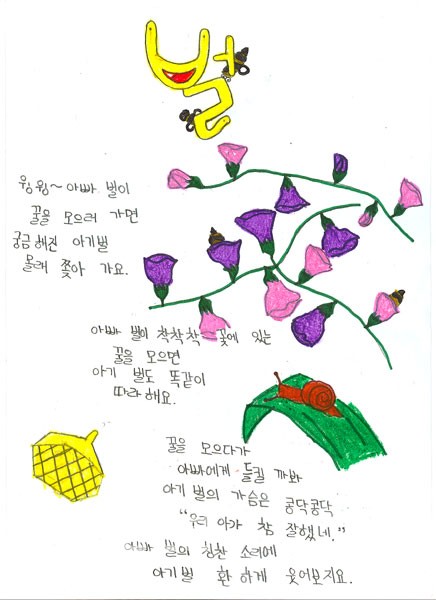 벌
윙윙~ 아빠 벌이
꿀을 모으러 가면
궁금해진 아기벌
몰래 쫓아 가요.
아빠 벌이 착착착 꽃에 있는
꿀을 모으면
아기 벌도 똑같이
따라해요.
꿀을 모으다가
아빠에게 들킬 까봐
아기 벌의 가슴은 콩닥콩닥
"우리 아가 참 잘했네."
아빠 벌의 칭찬 소리에
아기벌 환하게 웃어보지요.